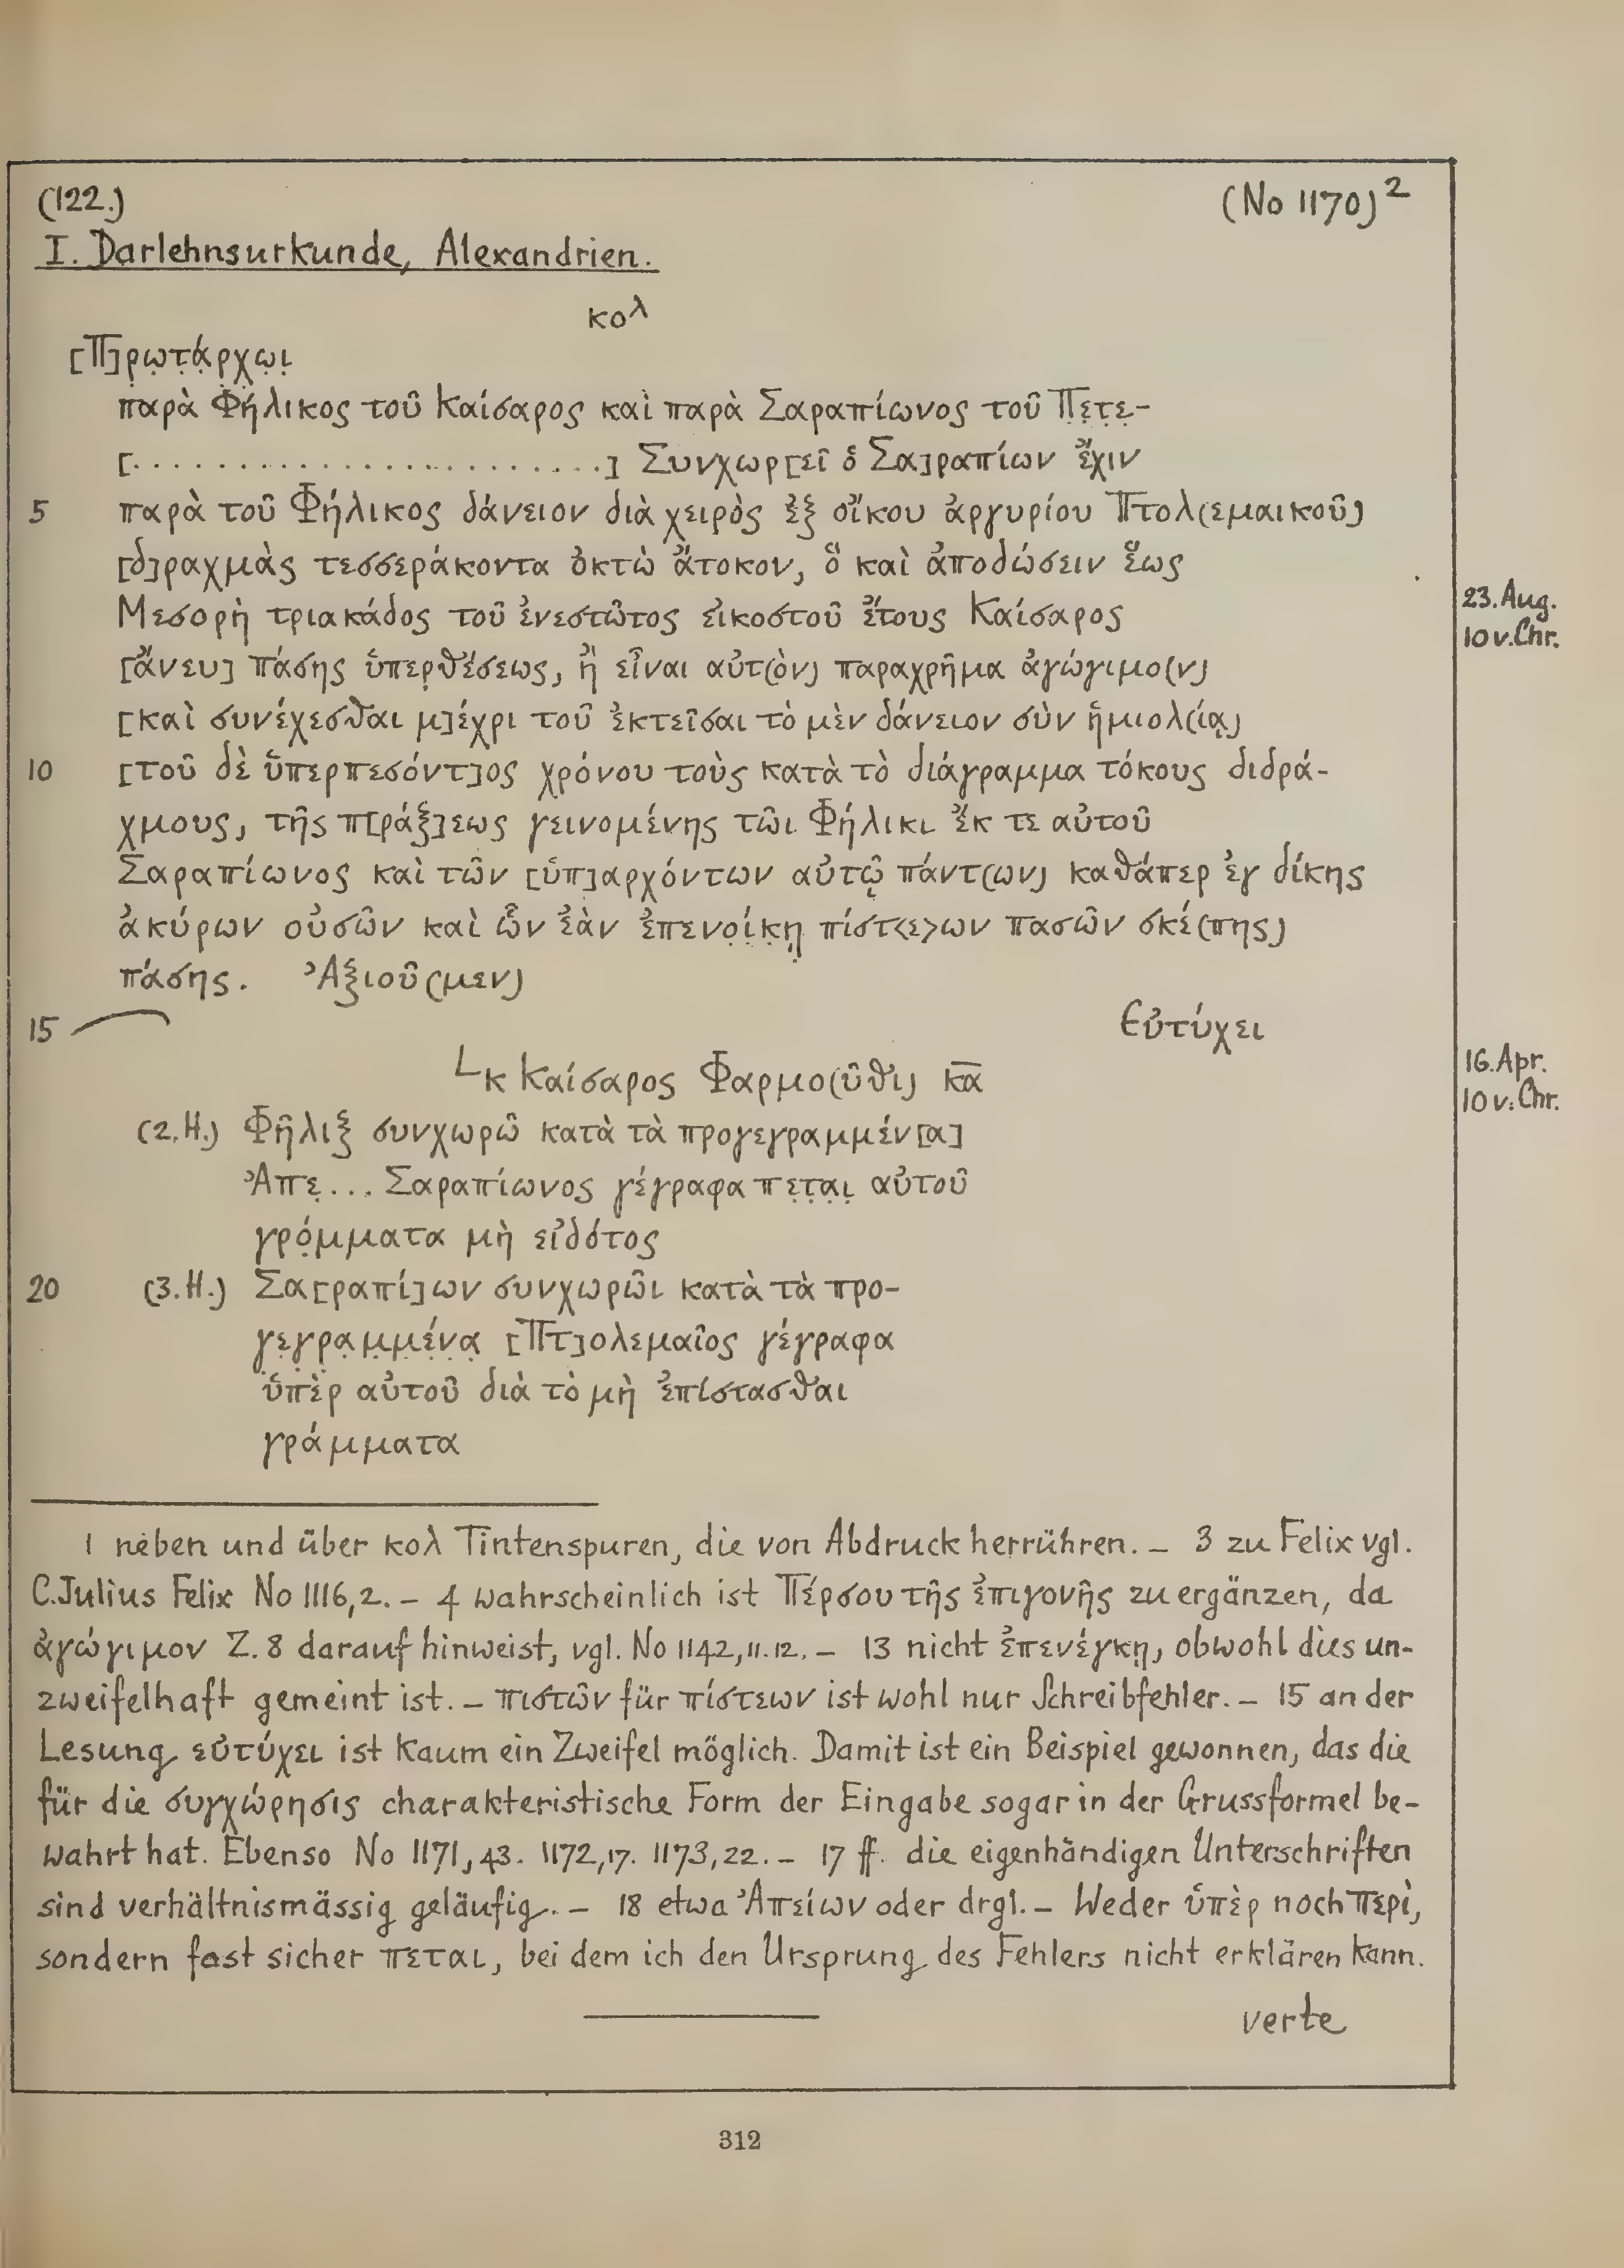 (122.) (No 1170)²
I. Darlehnsurkunde, Alexandrien.
κολ
[Π]ρ̣ω̣τ̣ά̣ρ̣χ̣ω̣ι̣
παρὰ Φήλικος τοῦ Καίσαρος καὶ παρὰ Σαραπίωνος τοῦ Π̣ε̣τ̣ε̣-
[. . . . . . . . . . . . . . . . . . . . . . . .] Συνχωρ[εῖ ὁ Σα]ραπίων ἔχιν
5 παρὰ τοῦ Φήλικος δάνειον διὰ χειρὸς ἐξ οἴκου ἀργυρίου Πτολ(εμαικοῦ)
[δ]ραχμὰς τεσσεράκοντα ὀκτὼ ἄτοκον, ὃ καὶ ἀποδώσειν ἕως
Μεσορὴ τριακάδος τοῦ ἐνεστῶτος εἰκοστοῦ ἔτους Καίσαρος 23. Aug.
10 v. Chr.
[ἄνευ] πάσης ὑπερθέσεως, ἢ εἶναι αὐτ(ὸν) παραχρῆμα ἀγώγιμο(ν)
[καὶ συνέχεσθαι μ]έχρι τοῦ ἐκτεῖσαι τὸ μὲν δάνειον σὺν ἡμιολ(ίᾳ)
10 [τοῦ δὲ ὑπερπεσόντ]ος χρόνου τοὺς κατὰ τὸ διάγραμμα τόκους διδρά-
χμους, τῆς π[ράξ]εως γεινομένης τῶι Φήλικι ἔκ τε αὐτοῦ
Σαραπίωνος καὶ τῶν [ὑπ]αρχόντων αὐτῷ πάντ(ων) καθάπερ ἐγ δίκης
ἀκύρων οὐσῶν καὶ ὧν ἐὰν ἐπενο̣ί̣κ̣ῃ̣ πίστ<ε>ων πασῶν σκέ(πης)
πάσης. Ἀξιοῦ(μεν)
15 Εὐτύχει
L κ Καίσαρος Φαρμο(ῦθι) κ̅α̅ 16. Apr.
10 v. Chr.
(2. H.) Φῆλιξ συνχωρῶ κατὰ τὰ προγεγραμμέν[α]
Ἀπε̣... Σαραπίωνος γέγραφα πε̣τ̣α̣ι̣ αὐτοῦ
γρό̣μματα μὴ εἰδότος
20 (3. H.) Σα[ραπί]ων συνχωρῶι κατὰ τὰ προ-
γε̣γ̣ρ̣α̣μ̣μ̣έ̣ν̣α̣ [Πτ]ολεμαῖος γέγραφα
ὑπὲρ αὐτοῦ διὰ τὸ μὴ ἐπίστασθαι
γράμματα
1 neben und über κολ Tintenspuren, die von Abdruck herrühren. – 3 zu Felix vgl.
C. Julius Felix No 1116, 2. – 4 wahrscheinlich ist Πέρσου τῆς ἐπιγονῆς zu ergänzen, da
ἀγώγιμον Z. 8 darauf hinweist, vgl. No 1142, 11. 12. – 13 nicht ἐπενέγκῃ, obwohl dies un-
zweifelhaft gemeint ist. – πιστῶν für πίστεων ist wohl nur Schreibfehler. – 15 an der
Lesung εὐτύχει ist kaum ein Zweifel möglich. Damit ist ein Beispiel gewonnen, das die
für die συγχώρησις charakteristische Form der Eingabe sogar in der Grussformel be-
wahrt hat. Ebenso No 1171, 43. 1172, 17. 1173, 22. – 17 ff. die eigenhändigen Unterschriften
sind verhältnismässig geläufig. – 18 etwa Ἀπείων oder drgl. – Weder ὑπὲρ noch περὶ,
sondern fast sicher πεται, bei dem ich den Ursprung des Fehlers nicht erklären kann.
verte
312